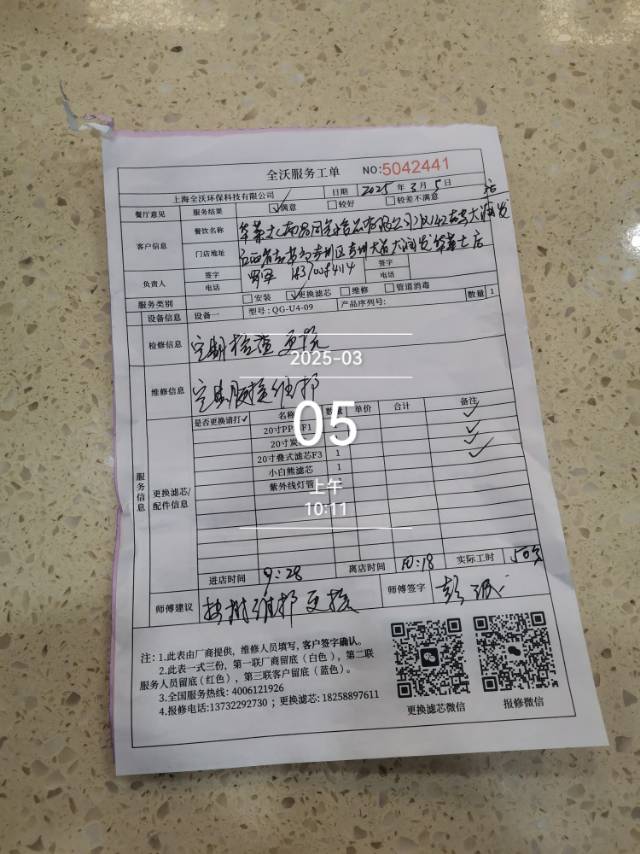 全沃服务工单 NO:5042441
上海全沃环保科技有限公司 日期 2025年3月5日
餐厅意见 服务结果 ☑满意 □较好 □较差不满意
客户信息 餐饮名称
门店地址
负责人 签字 签字
电话 电话
服务类别 □安装 ☑更换滤芯 □维修 □管道消毒
设备信息 设备一 型号:QG-U4-09 产品序列号: 数量 1
检修信息 定期检查更换
2025-03
维修信息 定期 维护
05
服务信息 更换滤芯/配件信息
是否更换请打✓ 名称 数量 单价 合计 备注
20寸PP F1 ✓
20寸炭 ✓
20寸叠式滤芯F3 1 ✓
小白熊滤芯 1 ✓
紫外线灯管
上午
10:11
进店时间 9:28 离店时间 10:18 实际工时 50分
师傅建议 按时维护更换 师傅签字 彭
注:1.此表由厂商提供,维修人员填写,客户签字确认。
2.此表一式三份,第一联厂商留底(白色),第二联
服务人员留底(红色),第三联客户留底(蓝色)。
3.全国服务热线:4006121926
4.报修电话:13732292730;更换滤芯:18258897611
更换滤芯微信 报修微信